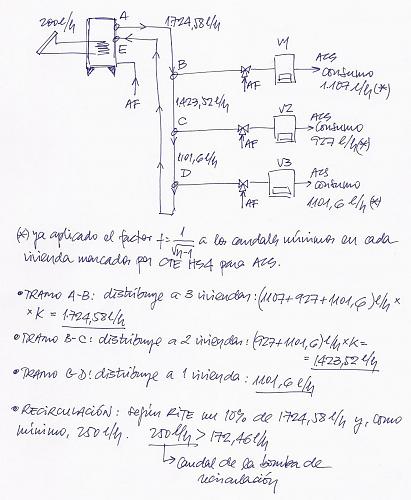 200l/h
A
1724,58l/h
E
V1
ACS
CONSUMO
1107 l/h(*)
B
AF
AF
1423,52l/h
V2
ACS
CONSUMO
927 l/h(*)
C
AF
1101,6l/h
V3
ACS
CONSUMO
1101,6 l/h(*)
D
AF
(*) ya aplicado el factor f=1/√n-1 a los caudales mínimos en cada
vivienda marcados por CTE HS4 para ACS.
• TRAMO A-B: distribuye a 3 viviendas: (1107+927+1101,6)l/h x
x K = 1724,58l/h
• TRAMO B-C: distribuye a 2 viviendas: (927+1101,6)l/h x K =
= 1423,52l/h
• TRAMO C-D: distribuye a 1 vivienda: 1101,6l/h
• RECIRCULACIÓN: según RITE un 10% de 1724,58l/h y, como
mínimo, 250l/h. 250l/h > 172,46l/h
caudal de la bomba de
recirculación